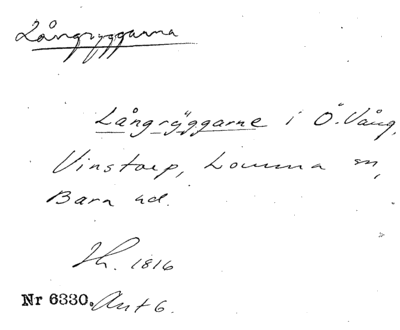 Långryggarna
Långryggarne i Ö. Vång,
Vinstorp, Lomma sn,
Bara hd.
Th. 1816
Nr 6330. Akt 6.